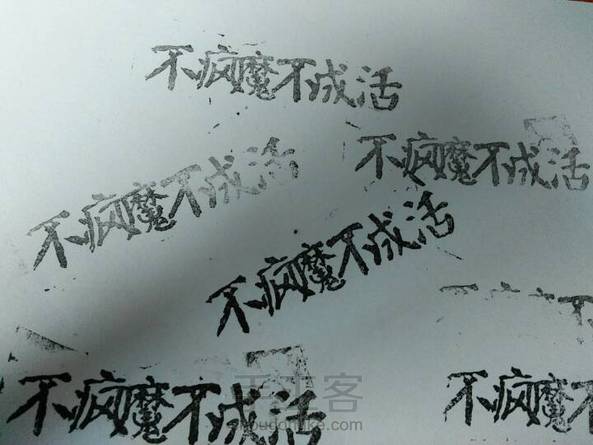 不疯魔不成活
不疯魔不成活
不疯魔不成活
不疯魔不成活
不疯魔不成活
不疯魔不